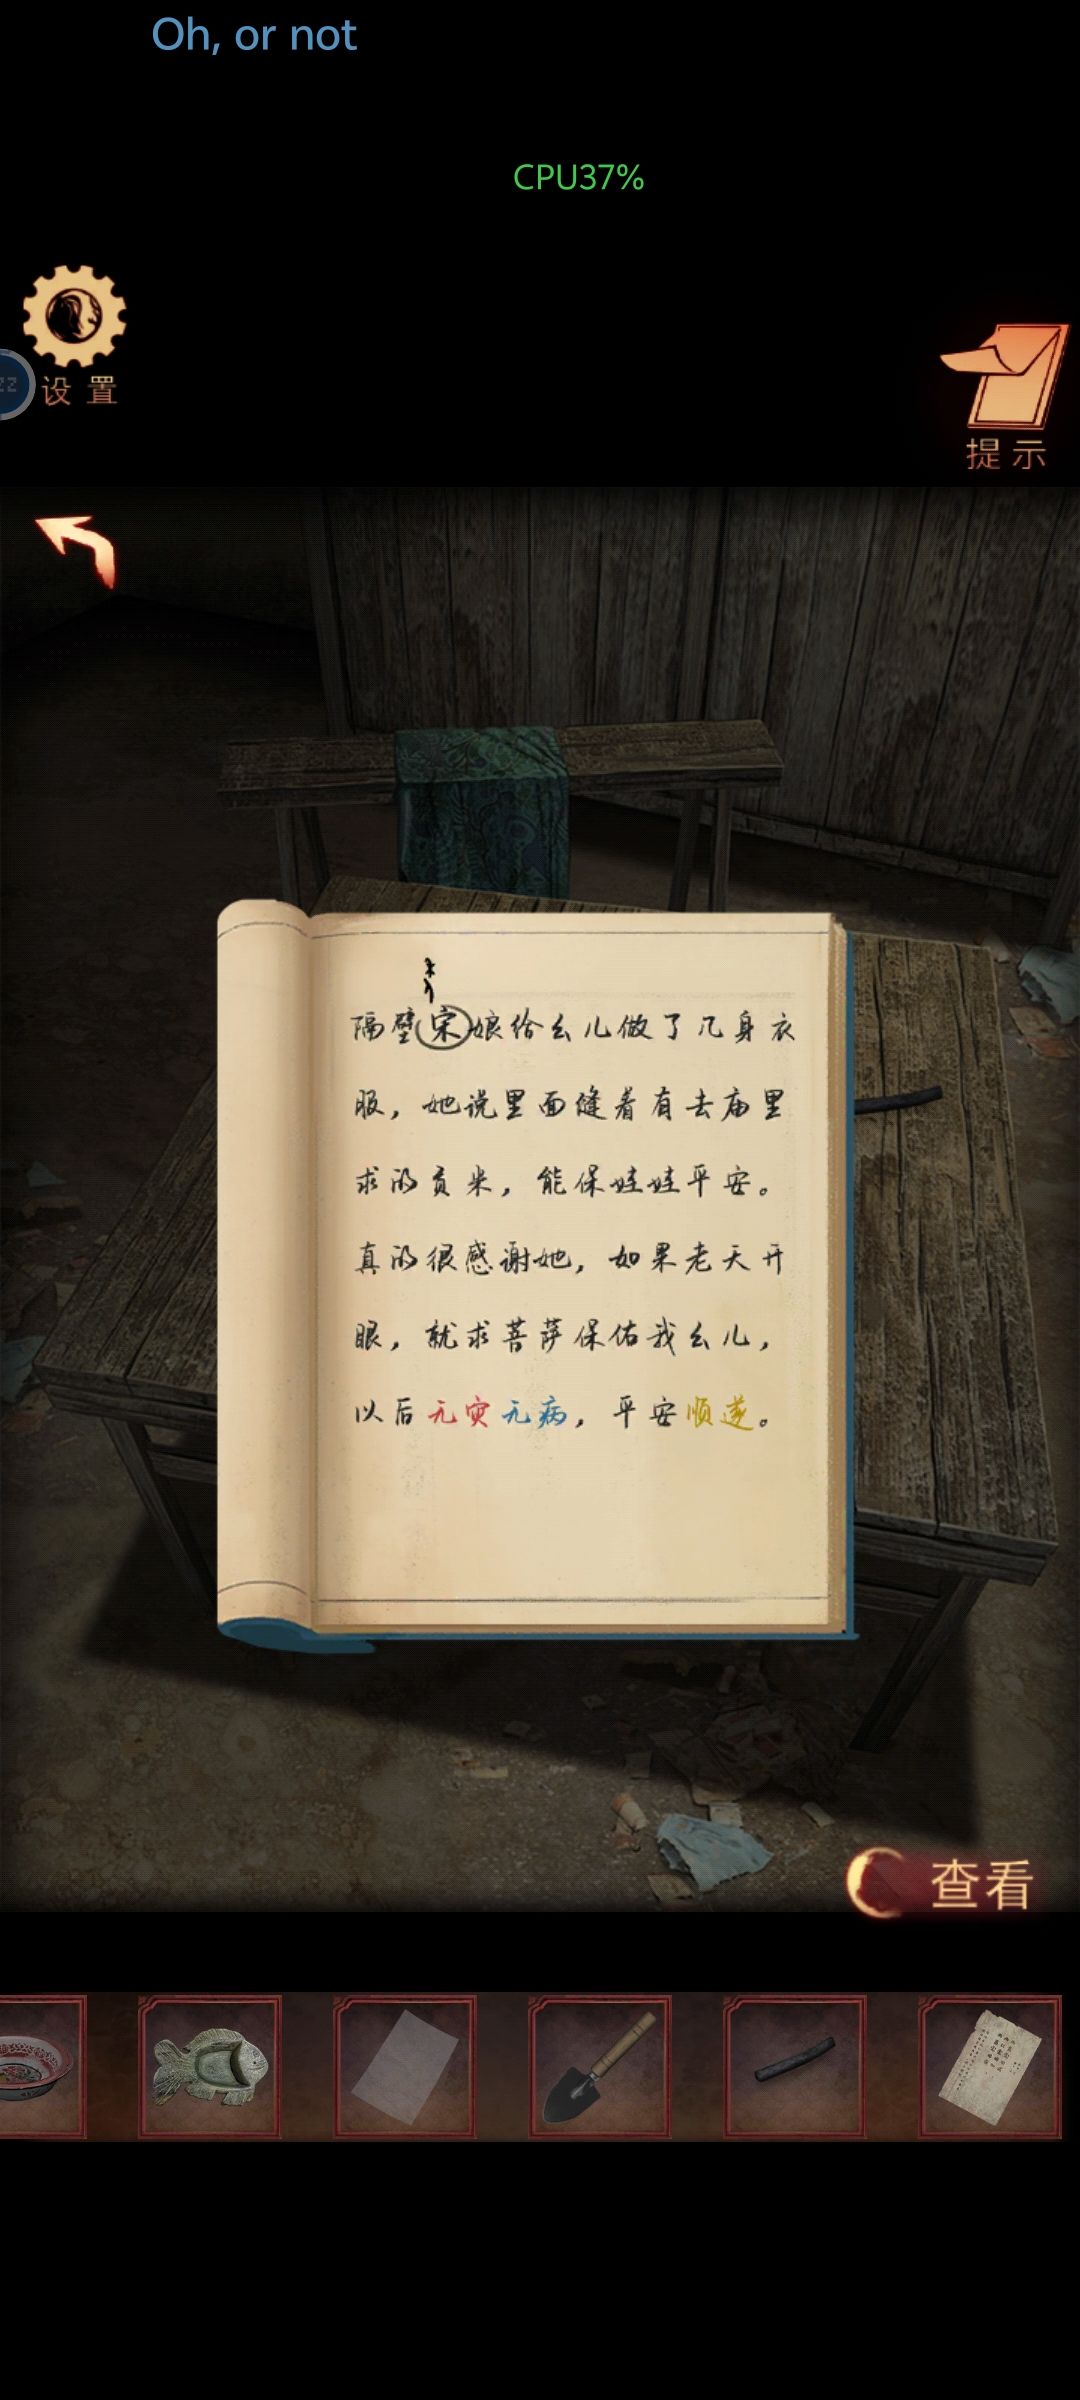 Oh, or not
CPU37%
设置
提示
隔壁宋娘给幺儿做了几身衣
服，她说里面缝着有去庙里
求的贡米，能保娃娃平安。
真的很感谢她，如果老天开
眼，就求菩萨保佑我幺儿，
以后无灾无病，平安顺遂。
查看